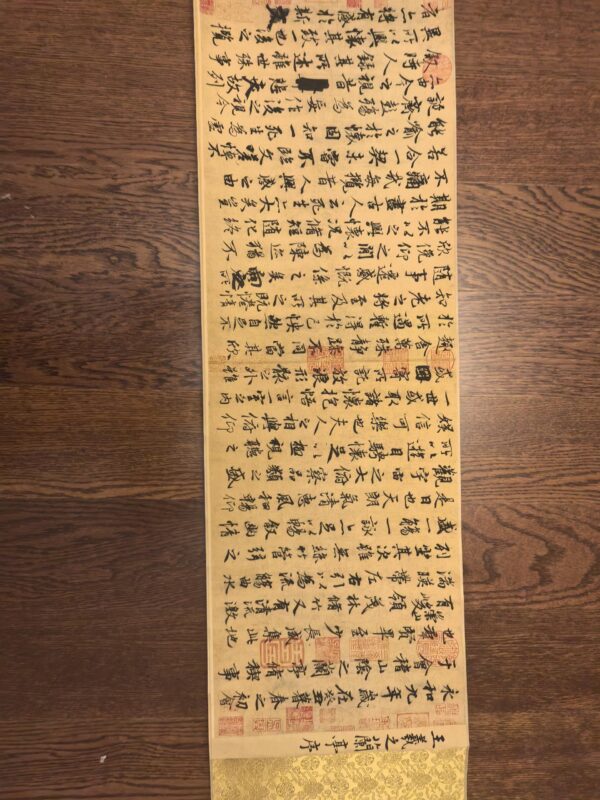 王羲之蘭亭序
永和九年歲在癸丑暮春之初會
于會稽山陰之蘭亭脩稧事
也羣賢畢至少長咸集此地
有崇山峻領茂林脩竹又有清流激
湍暎帶左右引以為流觴曲水
列坐其次雖無絲竹管弦之
盛一觴一詠亦足以暢敘幽情
是日也天朗氣清惠風和暢仰
觀宇宙之大俯察品類之盛
所以遊目騁懷足以極視聽之
娛信可樂也夫人之相與俯仰
一世或取諸懷抱悟言一室之內
或因寄所託放浪形骸之外雖
趣舍萬殊靜躁不同當其欣
於所遇暫得於己快然自足不
知老之將至及其所之既惓情
隨事遷感慨係之矣向之所
欣俛仰之閒以為陳迹猶不
能不以之興懷況脩短隨化終
期於盡古人云死生亦大矣豈
不痛哉每攬昔人興感之由
若合一契未嘗不臨文嗟悼不
能喻之於懷固知一死生為虛
誕齊彭殤為妄作後之視今
亦由今之視昔悲夫故列
敘時人錄其所述雖世殊事
異所以興懷其致一也後之攬
者亦將有感於斯文